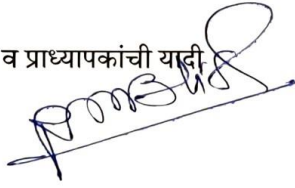 व प्राध्यापकांची यादी